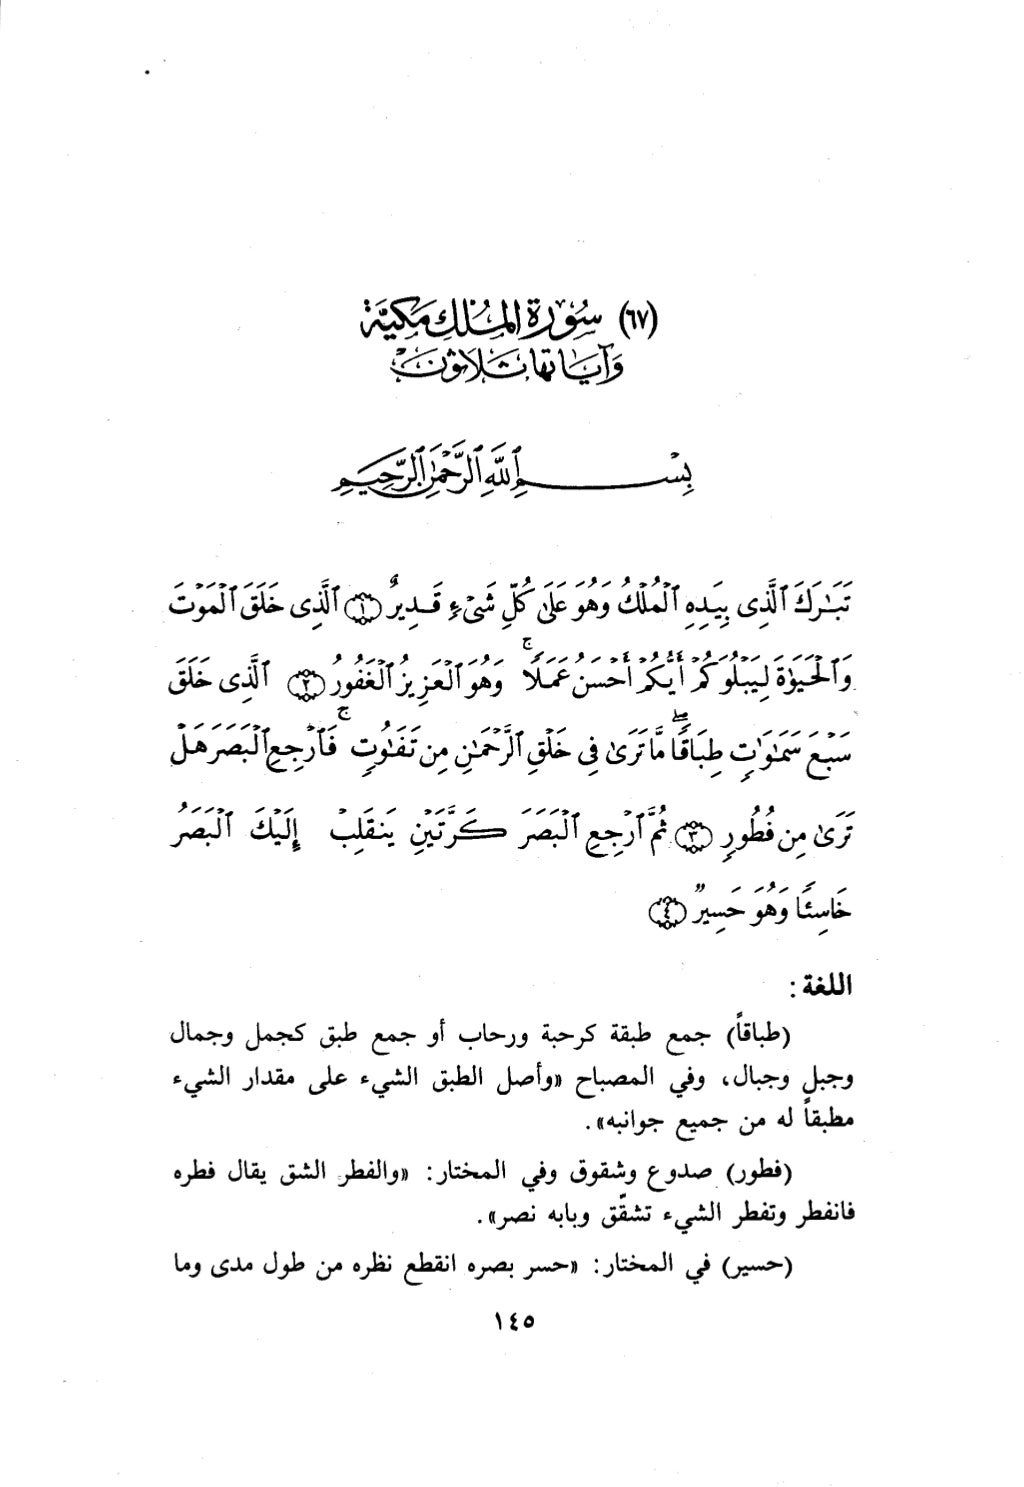 (٦٧) سُورَة المُلْك مَكيَّة
وَآيَاتها ثَلَاثُونَ
بِسْمِ ٱللَّهِ ٱلرَّحْمَٰنِ ٱلرَّحِيمِ
تَبَٰرَكَ ٱلَّذِى بِيَدِهِ ٱلْمُلْكُ وَهُوَ عَلَىٰ كُلِّ شَىْءٍ قَدِيرٌ ﴿١﴾ ٱلَّذِى خَلَقَ ٱلْمَوْتَ
وَٱلْحَيَوٰةَ لِيَبْلُوَكُمْ أَيُّكُمْ أَحْسَنُ عَمَلًا ۚ وَهُوَ ٱلْعَزِيزُ ٱلْغَفُورُ ﴿٢﴾ ٱلَّذِى خَلَقَ
سَبْعَ سَمَٰوَٰتٍ طِبَاقًا ۖ مَّا تَرَىٰ فِى خَلْقِ ٱلرَّحْمَٰنِ مِن تَفَٰوُتٍ ۚ فَٱرْجِعِ ٱلْبَصَرَ هَلْ
تَرَىٰ مِن فُطُورٍ ﴿٣﴾ ثُمَّ ٱرْجِعِ ٱلْبَصَرَ كَرَّتَيْنِ يَنقَلِبْ إِلَيْكَ ٱلْبَصَرُ
خَاسِئًا وَهُوَ حَسِيرٌ ﴿٤﴾
اللغة :
(طباقاً) جمع طبقة كرحبة ورحاب أو جمع طبق كجمل وجمال
وجبل وجبال، وفي المصباح «وأصل الطبق الشيء على مقدار الشيء
مطبقاً له من جميع جوانبه».
(فطور) صدوع وشقوق وفي المختار: «والفطر الشق يقال فطره
فانفطر وتفطر الشيء تشقّق وبابه نصر».
(حسير) في المختار: «حسر بصره انقطع نظره من طول مدى وما
١٤٥